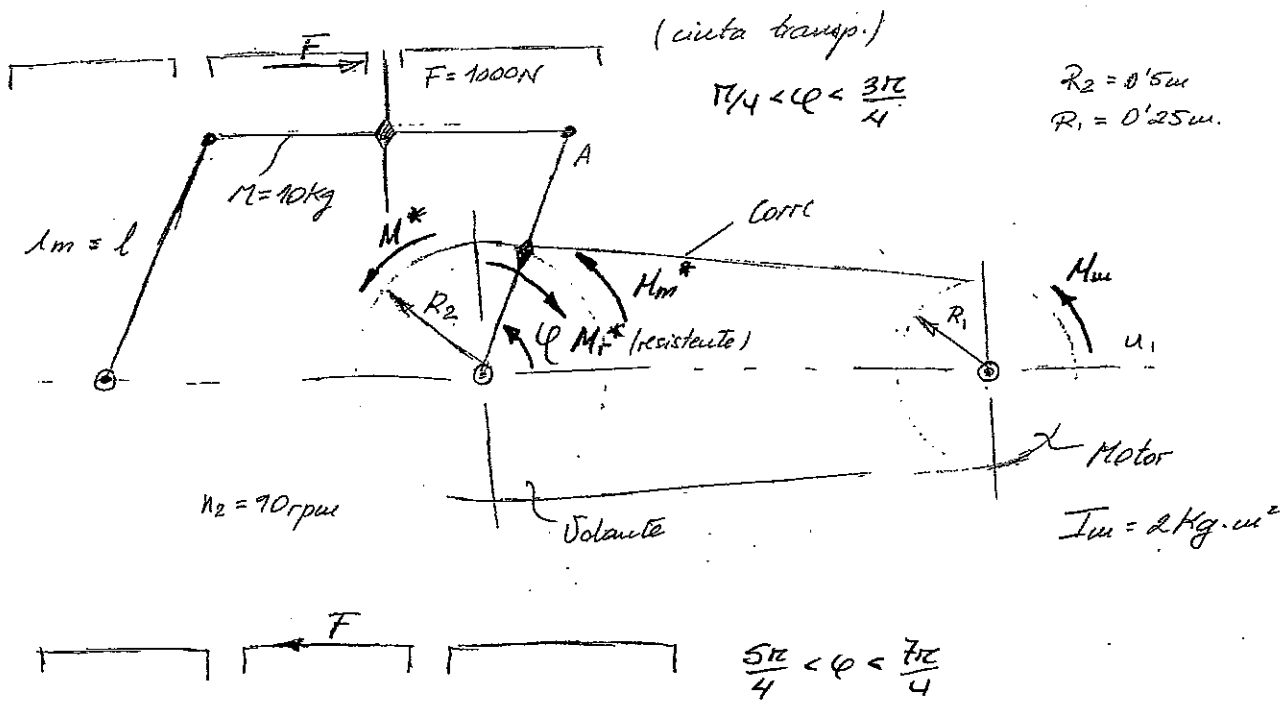 (cinta transp.)
F
F = 1000N
π/4 < φ < 3π/4
R2 = 0'5m
R1 = 0'25m.
A
M = 10Kg
1m = l
M*
Corre
Mm*
R2
φ
Mr* (resistente)
R1
Mm
n1
Motor
n2 = 10rpm
Volante
Im = 2Kg·m²
F
5π/4 < φ < 7π/4